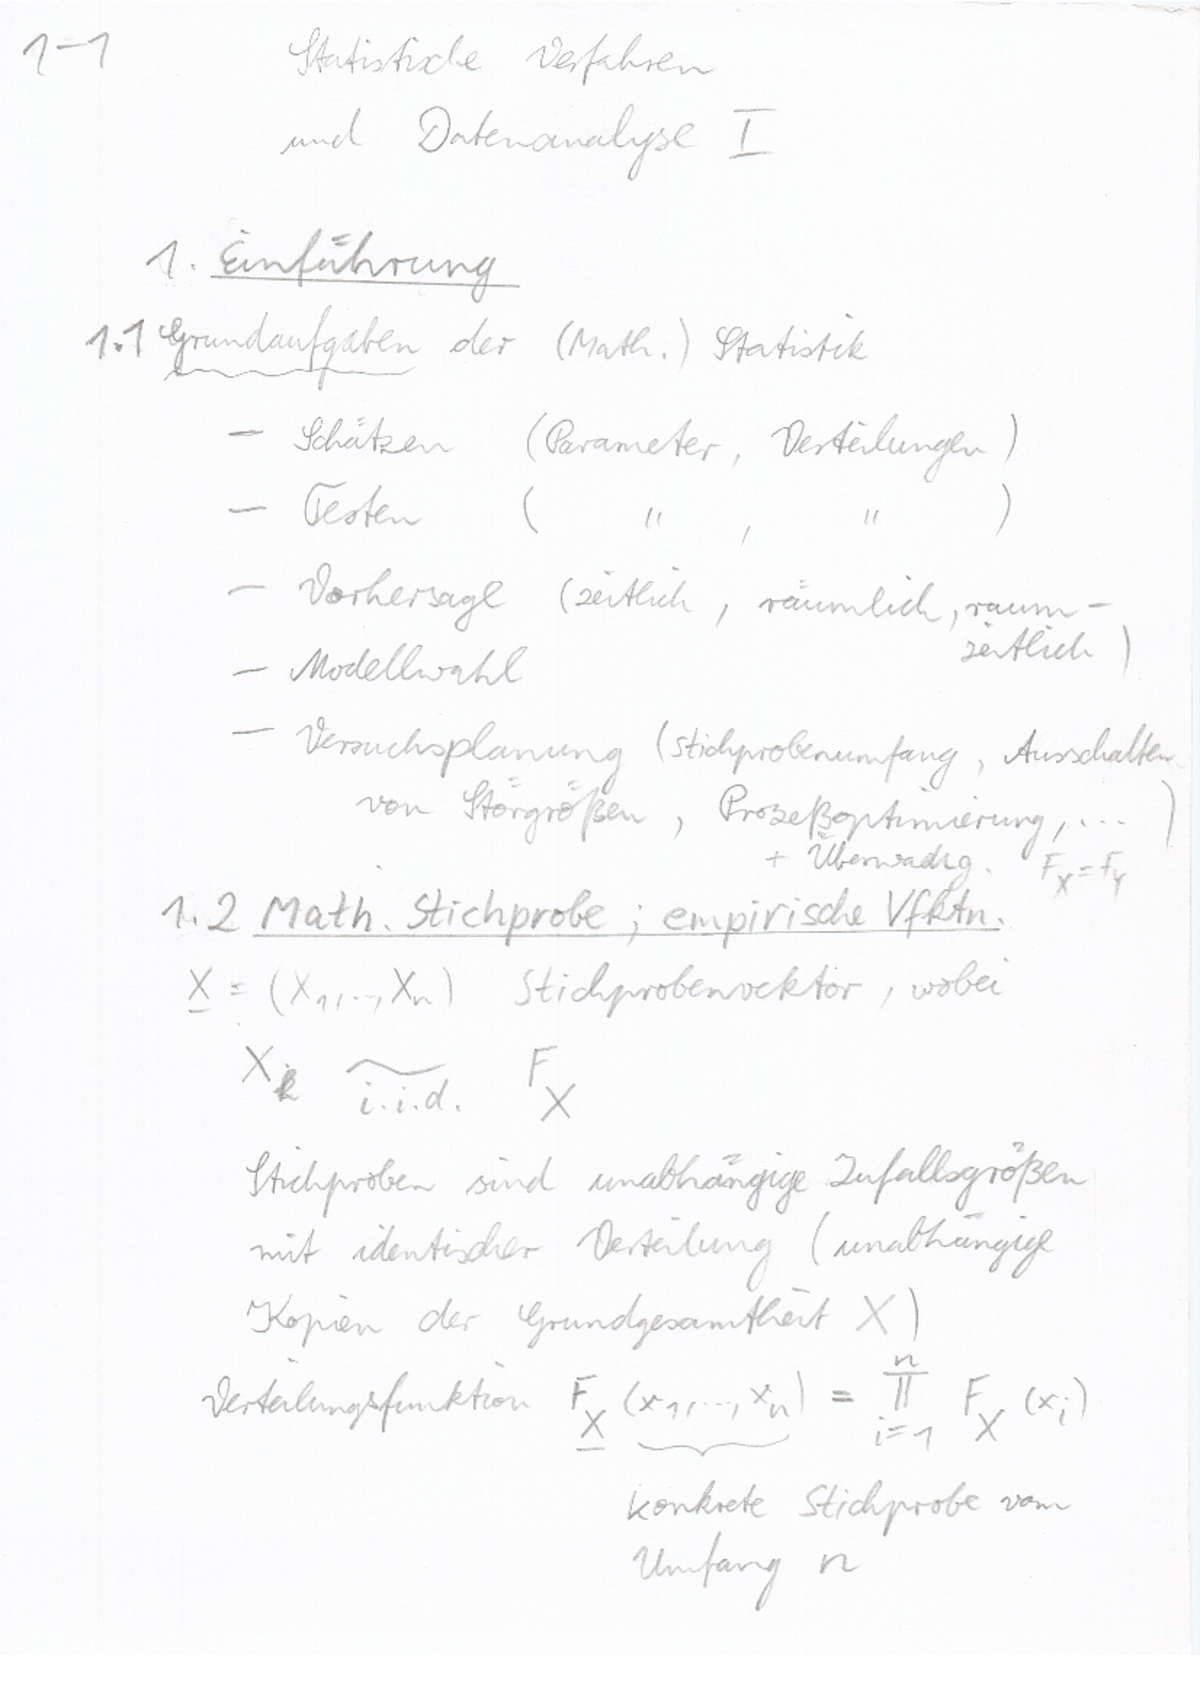 1-1 Statistische Verfahren
und Datenanalyse I
1. Einführung
1.1 Grundaufgaben der (Math.) Statistik
– Schätzen (Parameter, Verteilungen)
– Testen ( " , " )
– Vorhersage (zeitlich, räumlich, raum-
zeitlich)
– Modellwahl
– Versuchsplanung (Stichprobenumfang, Ausschalten
von Störgrößen, Prozeßoptimierung, ... )
+ Überwachg. F_X = F_Y
1.2 Math. Stichprobe; empirische Vfktn.
X = (X_1, .., X_n) Stichprobenvektor, wobei
X_i ~ i.i.d. F_X
Stichproben sind unabhängige Zufallsgrößen
mit identischer Verteilung (unabhängige
Kopien der Grundgesamtheit X)
Verteilungsfunktion F_X (x_1, .., x_n) = ∏_{i=1}^n F_X (x_i)
konkrete Stichprobe vom
Umfang n